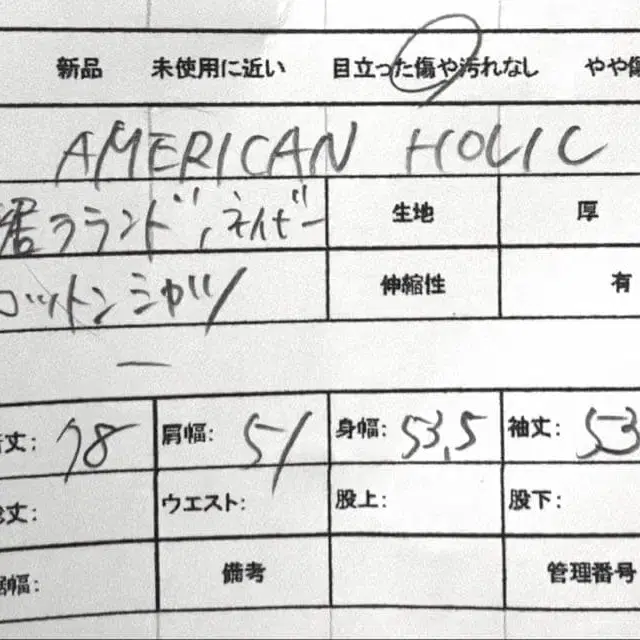 新品 未使用に近い 目立った傷や汚れなし やや傷
AMERICAN HOLIC
裾ラウンド、ネイビー 生地 厚
コットンシャツ 伸縮性 有
ー
着丈: 78 肩幅: 51 身幅: 53.5 袖丈: 53
総丈: ウエスト: 股上: 股下:
裾幅: 備考 管理番号